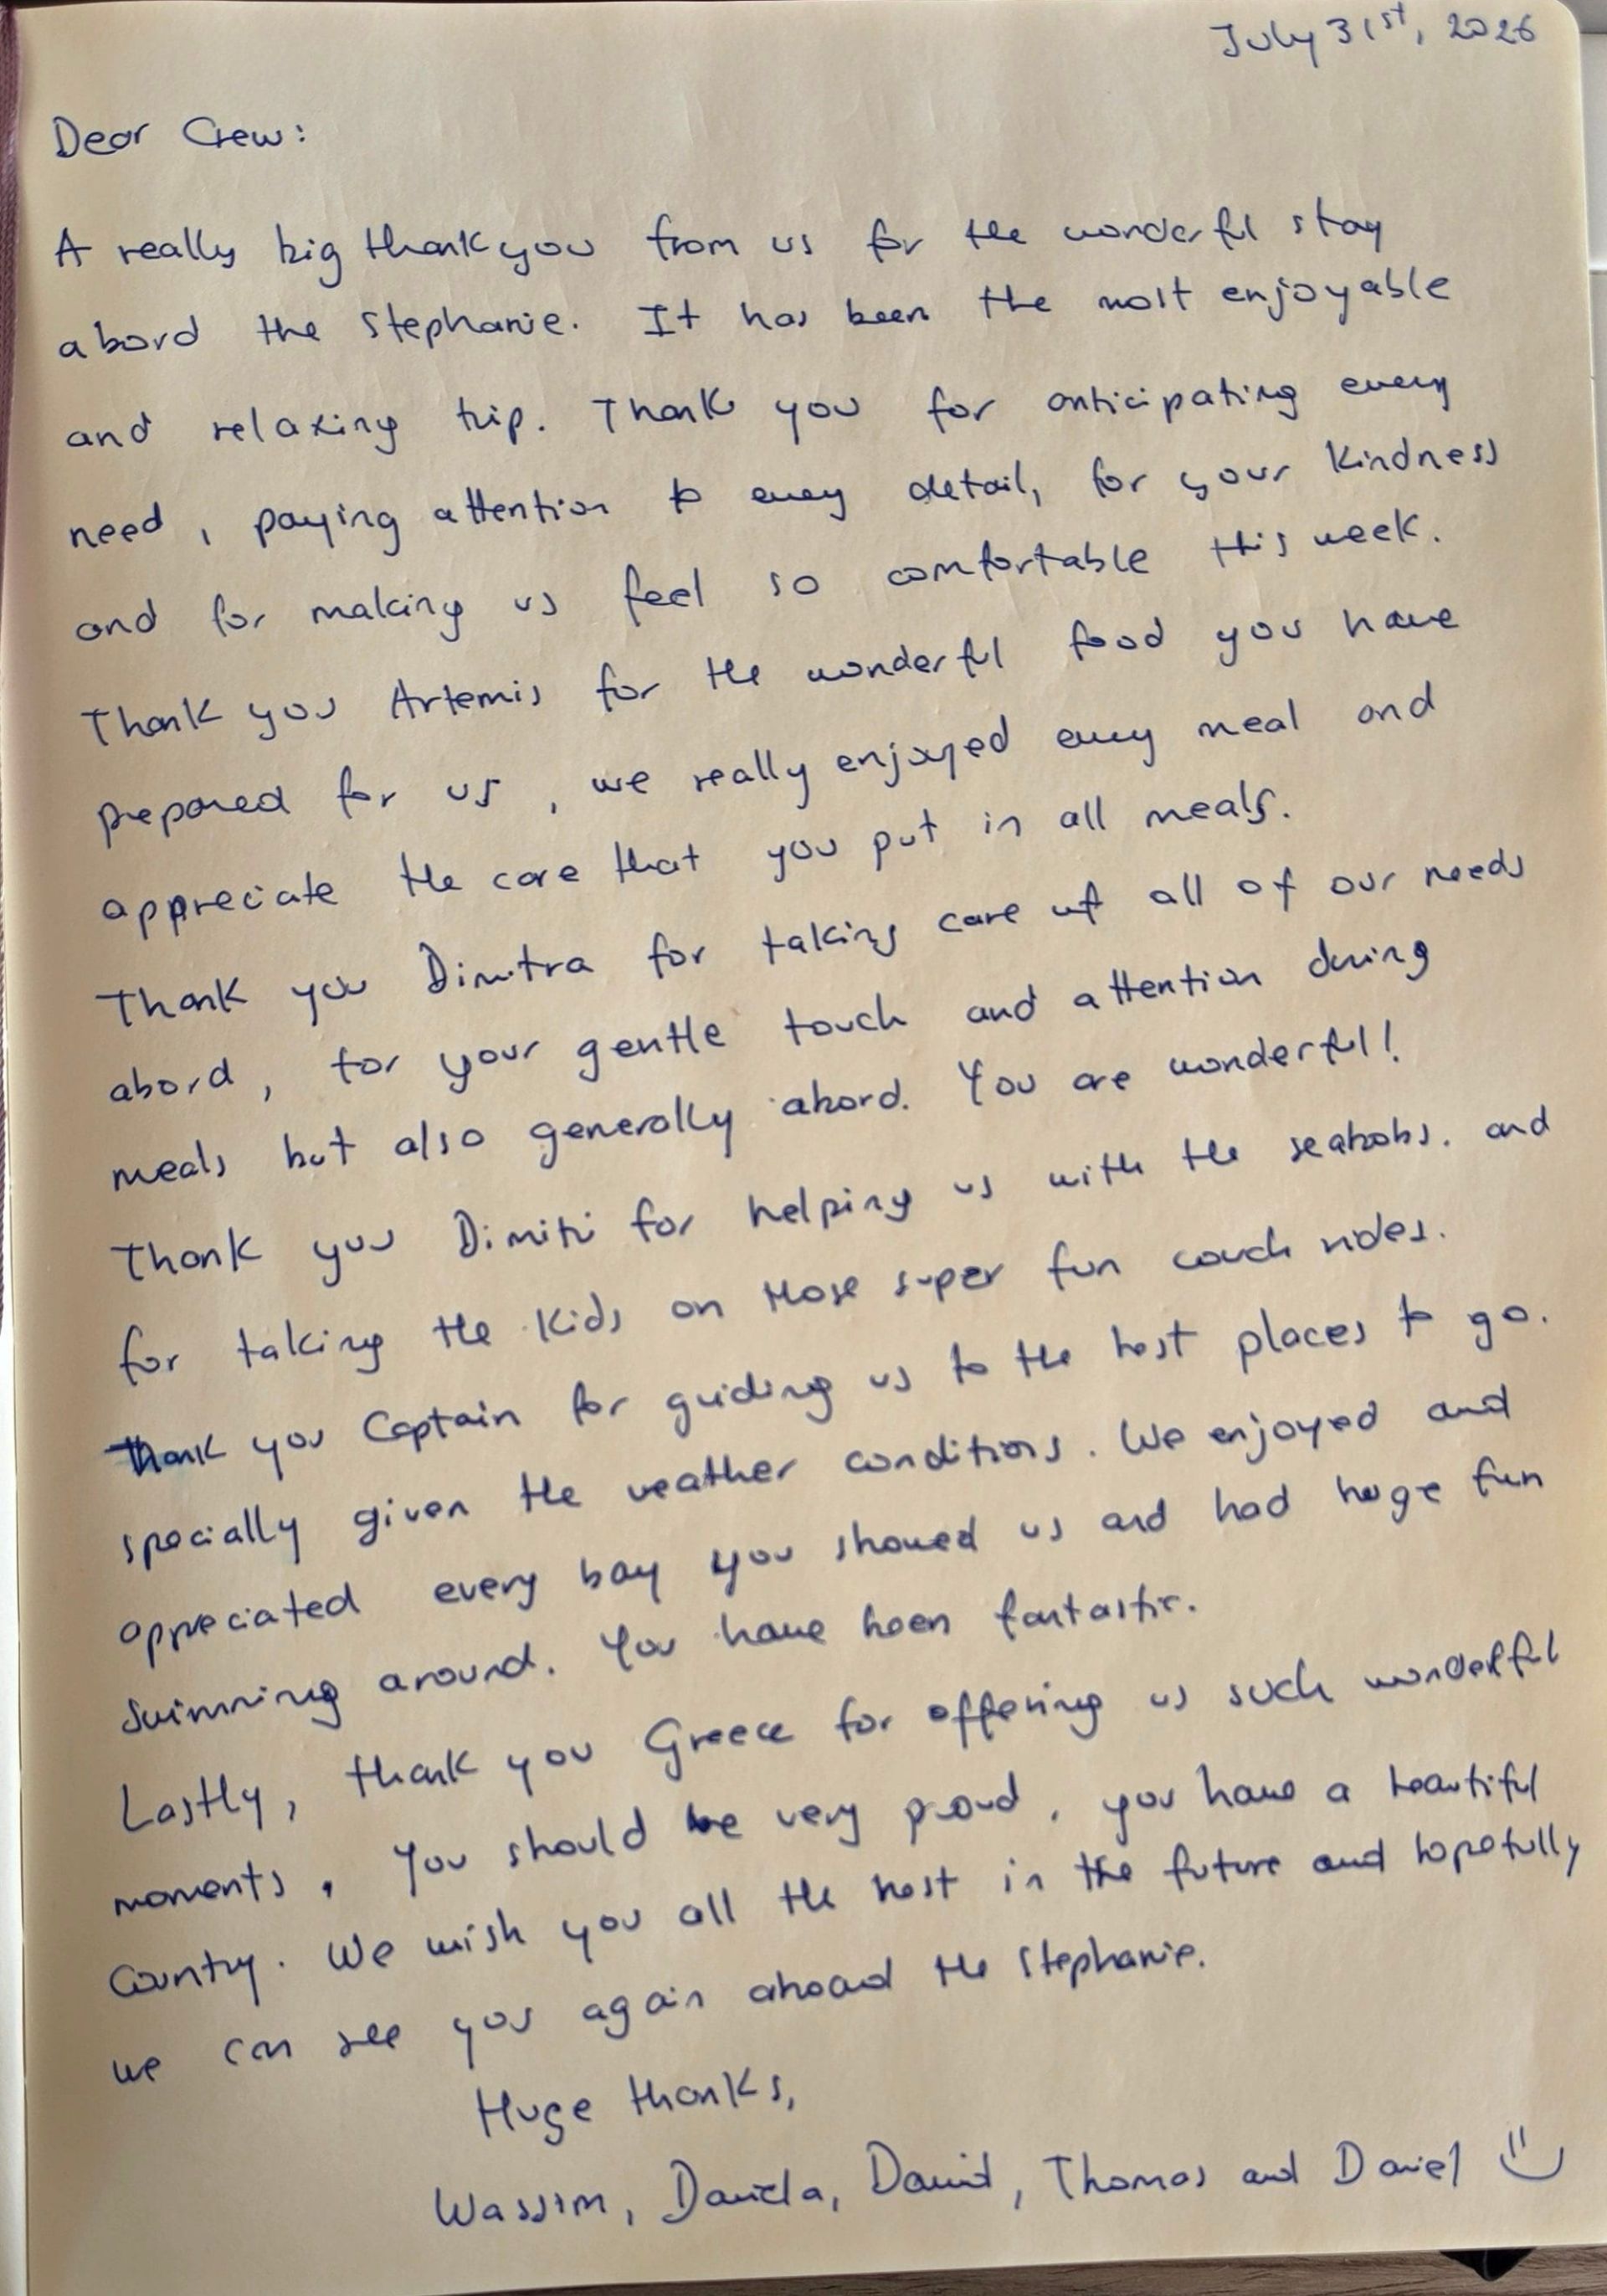 July 31st, 2026
Dear Crew:
A really big thank you from us for the wonderful stay
abord the Stephanie. It has been the most enjoyable
and relaxing trip. Thank you for anticipating every
need, paying attention to every detail, for your kindness
and for making us feel so comfortable this week.
Thank you Artemis for the wonderful food you have
prepared for us, we really enjoyed every meal and
appreciate the care that you put in all meals.
Thank you Dimitra for taking care of all of our needs
abord, for your gentle touch and attention during
meals but also generally abord. You are wonderful!
Thank you Dimitri for helping us with the seabobs. and
for taking the kids on those super fun couch rides.
Thank you Captain for guiding us to the best places to go.
specially given the weather conditions. We enjoyed and
appreciated every bay you showed us and had huge fun
swimming around. You have been fantastic.
Lastly, thank you Greece for offering us such wonderful
moments, you should be very proud, you have a beautiful
country. We wish you all the best in the future and hopefully
we can see you again aboard the Stephanie.
Huge thanks,
Wassim, Daniela, David, Thomas and Daniel